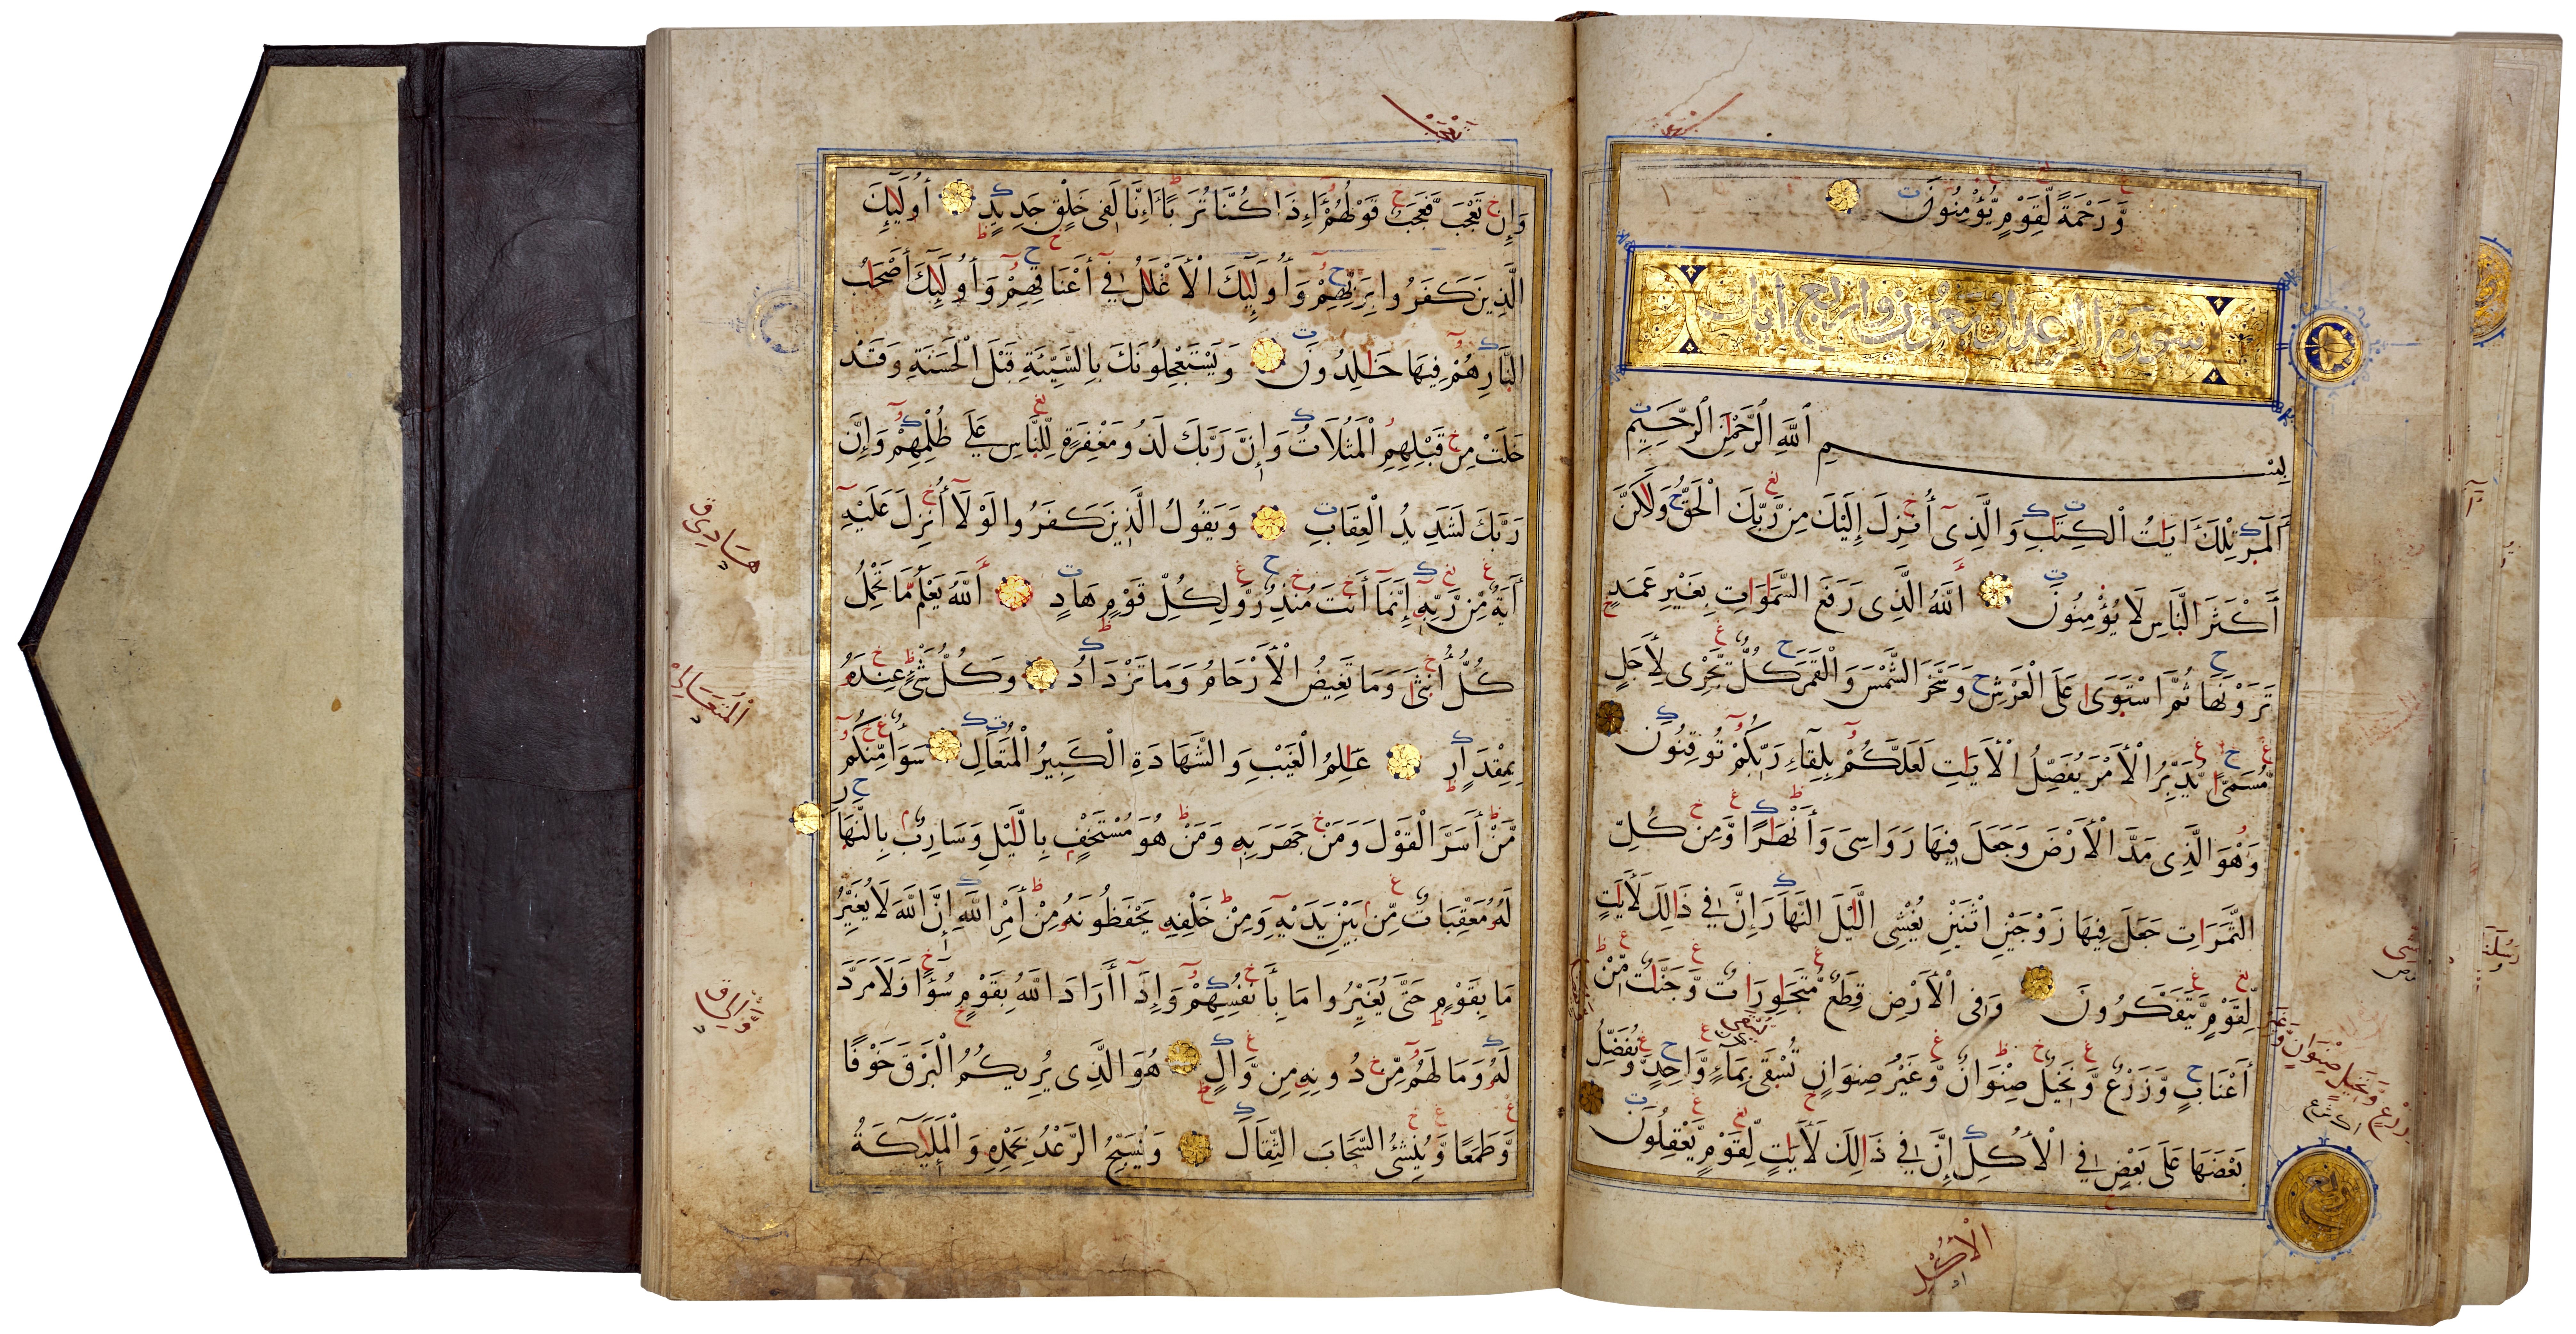 وَرَحْمَةً لِّقَوْمٍ يُؤْمِنُونَ
سورة الرعد اربعون واربع ايات
بِسْمِ اللَّهِ الرَّحْمَٰنِ الرَّحِيمِ
الٓمٓر تِلْكَ ءَايَٰتُ الْكِتَٰبِ وَالَّذِىٓ أُنزِلَ إِلَيْكَ مِن رَّبِّكَ الْحَقُّ وَلَٰكِنَّ
أَكْثَرَ النَّاسِ لَا يُؤْمِنُونَ اَللَّهُ الَّذِى رَفَعَ السَّمَٰوَاتِ بِغَيْرِ عَمَدٍ
تَرَوْنَهَا ثُمَّ اسْتَوَىٰ عَلَى الْعَرْشِ وَسَخَّرَ الشَّمْسَ وَالْقَمَرَ كُلٌّ يَجْرِى لِأَجَلٍ
مُّسَمًّى يُدَبِّرُ الْأَمْرَ يُفَصِّلُ الْأَيَٰتِ لَعَلَّكُمْ بِلِقَآءِ رَبِّكُمْ تُوقِنُونَ
وَهُوَ الَّذِى مَدَّ الْأَرْضَ وَجَعَلَ فِيهَا رَوَاسِىَ وَأَنْهَٰرًا وَّمِن كُلِّ
الثَّمَرَاتِ جَعَلَ فِيهَا زَوْجَيْنِ اثْنَيْنِ يُغْشِى الَّيْلَ النَّهَارَ إِنَّ فِى ذَالِكَ لَأَيَٰتٍ
لِّقَوْمٍ يَّتَفَكَّرُونَ وَفِى الْأَرْضِ قِطَعٌ مُّتَجَٰوِرَاتٌ وَّجَنَّٰتٌ مِّنْ
أَعْنَابٍ وَّزَرْعٌ وَّنَخِيلٌ صِنْوَانٌ وَّغَيْرُ صِنْوَانٍ تُسْقَىٰ بِمَآءٍ وَّاحِدٍ وَّنُفَضِّلُ
بَعْضَهَا عَلَى بَعْضٍ فِى الْأُكُلِ إِنَّ فِى ذَالِكَ لَأَيَٰتٍ لِّقَوْمٍ يَّعْقِلُونَ
الْأُكْلِ
وَإِن تَعْجَبْ فَعَجَبٌ قَوْلُهُمْ أَءِذَا كُنَّا تُرَٰبًا أَءِنَّا لَفِى خَلْقٍ جَدِيدٍ أُولَٰٓئِكَ
الَّذِينَ كَفَرُوا بِرَبِّهِمْ وَأُولَٰٓئِكَ الْأَغْلَٰلُ فِىٓ أَعْنَاقِهِمْ وَأُولَٰٓئِكَ أَصْحَابُ
النَّارِ هُمْ فِيهَا خَٰلِدُونَ وَيَسْتَعْجِلُونَكَ بِالسَّيِّئَةِ قَبْلَ الْحَسَنَةِ وَقَدْ
خَلَتْ مِن قَبْلِهِمُ الْمَثُلَاتُ وَإِنَّ رَبَّكَ لَذُو مَغْفِرَةٍ لِّلنَّاسِ عَلَىٰ ظُلْمِهِمْ وَإِنَّ
رَبَّكَ لَشَدِيدُ الْعِقَابِ وَيَقُولُ الَّذِينَ كَفَرُوا لَوْلَآ أُنزِلَ عَلَيْهِ
ءَايَةٌ مِّن رَّبِّهِ إِنَّمَآ أَنتَ مُنذِرٌ وَّلِكُلِّ قَوْمٍ هَادٍ اَللَّهُ يَعْلَمُ مَا تَحْمِلُ
كُلُّ أُنثَىٰ وَمَا تَغِيضُ الْأَرْحَامُ وَمَا تَزْدَادُ وَكُلُّ شَىْءٍ عِندَهُ
بِمِقْدَارٍ عَٰلِمُ الْغَيْبِ وَالشَّهَادَةِ الْكَبِيرُ الْمُتَعَالِ سَوَآءٌ مِّنكُم
مَّنْ أَسَرَّ الْقَوْلَ وَمَنْ جَهَرَ بِهِ وَمَنْ هُوَ مُسْتَخْفٍ بِالَّيْلِ وَسَارِبٌ بِالنَّهَارِ
لَهُ مُعَقِّبَاتٌ مِّن بَيْنِ يَدَيْهِ وَمِنْ خَلْفِهِ يَحْفَظُونَهُ مِنْ أَمْرِ اللَّهِ إِنَّ اللَّهَ لَا يُغَيِّرُ
مَا بِقَوْمٍ حَتَّىٰ يُغَيِّرُوا مَا بِأَنفُسِهِمْ وَإِذَآ أَرَادَ اللَّهُ بِقَوْمٍ سُوٓءًا فَلَا مَرَدَّ
لَهُ وَمَا لَهُم مِّن دُونِهِ مِن وَّالٍ هُوَ الَّذِى يُرِيكُمُ الْبَرْقَ خَوْفًا
وَّطَمَعًا وَّيُنشِئُ السَّحَابَ الثِّقَالَ وَيُسَبِّحُ الرَّعْدُ بِحَمْدِهِ وَالْمَلَٰٓئِكَةُ
هَادِى
الْمُتَعَالِى